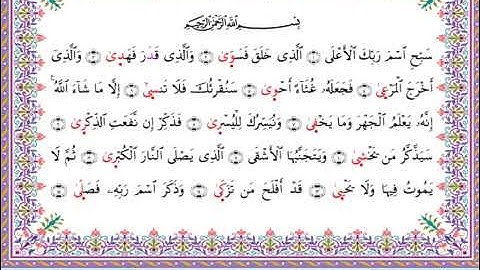 بِسْمِ اللَّهِ الرَّحْمَٰنِ الرَّحِيمِ
سَبِّحِ اسْمَ رَبِّكَ الْأَعْلَى ۝ الَّذِي خَلَقَ فَسَوَّىٰ ۝ وَالَّذِي قَدَّرَ فَهَدَىٰ ۝ وَالَّذِي
أَخْرَجَ الْمَرْعَىٰ ۝ فَجَعَلَهُ غُثَاءً أَحْوَىٰ ۝ سَنُقْرِئُكَ فَلَا تَنسَىٰ ۝ إِلَّا مَا شَاءَ اللَّهُ ۚ
إِنَّهُ يَعْلَمُ الْجَهْرَ وَمَا يَخْفَىٰ ۝ وَنُيَسِّرُكَ لِلْيُسْرَىٰ ۝ فَذَكِّرْ إِن نَّفَعَتِ الذِّكْرَىٰ ۝
سَيَذَّكَّرُ مَن يَخْشَىٰ ۝ وَيَتَجَنَّبُهَا الْأَشْقَى ۝ الَّذِي يَصْلَى النَّارَ الْكُبْرَىٰ ۝ ثُمَّ لَا
يَمُوتُ فِيهَا وَلَا يَحْيَىٰ ۝ قَدْ أَفْلَحَ مَن تَزَكَّىٰ ۝ وَذَكَرَ اسْمَ رَبِّهِ فَصَلَّىٰ ۝